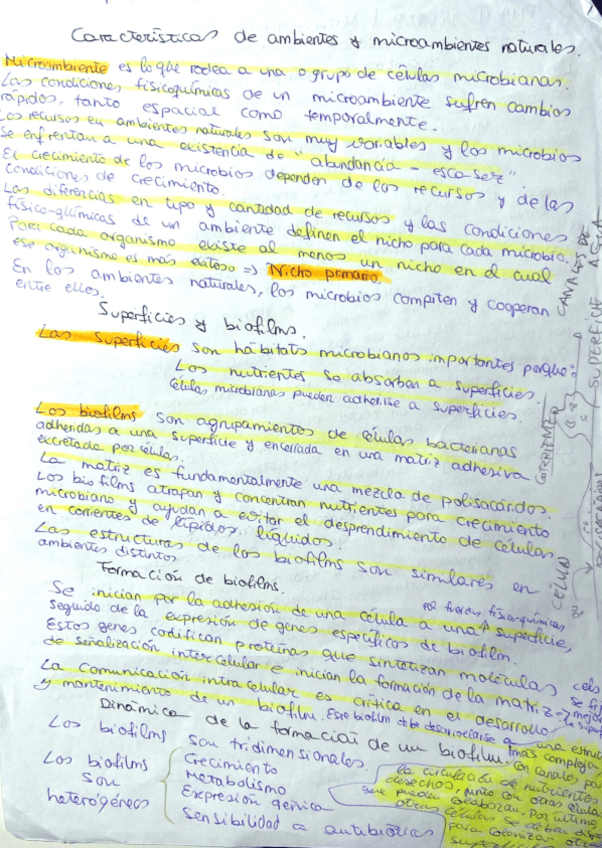 Características de ambientes y microambientes naturales.
Microambiente es lo que rodea a una o grupo de células microbianas.
Las condiciones fisicoquímicas de un microambiente sufren cambios
rápidos, tanto espacial como temporalmente.
Los recursos en ambientes naturales son muy variables y los microbios
Se enfrentan a una existencia de "abundancia - escasez".
El crecimiento de los microbios dependen de los recursos y de las
condiciones de crecimiento.
Las diferencias en tipo y cantidad de recursos y las condiciones
físico-químicas de un ambiente definen el nicho para cada microbio.
Para cada organismo existe al menos un nicho en el cual
ese organismo es más exitoso => Nicho primario.
En los ambientes naturales, los microbios compiten y cooperan
entre ellos.
Superficies y biofilms.
Las superficies son hábitats microbianos importantes porque:
Los nutrientes se absorban a superficies.
Células microbianas pueden adherirse a superficies.
Los biofilms son agrupamientos de células bacterianas
adheridas a una superficie y encerrada en una matriz adhesiva
excretada por células.
La matriz es fundamentalmente una mezcla de polisacáridos.
Los biofilms atrapan y concentran nutrientes para crecimiento
microbiano y ayudan a evitar el desprendimiento de células
en corrientes de líquidos.
Las estructuras de los biofilms son similares en
ambientes distintos
Formación de biofilms.
por fuerzas fisicoquímicas
Se inician por la adhesión de una célula a una superficie,
seguido de la expresión de genes específicos de biofilm.
Estos genes codifican proteínas que sintetizan moléculas
de señalización intercelular e inician la formación de la matriz
La comunicación intracelular es crítica en el desarrollo
y mantenimiento de un biofilm. Este biofilm debe desarrollarse a una
más compleja
Dinámica de la formación de un biofilm. con canales
Los biofilms son tridimensionales.
Los biofilms son heterogéneos
Crecimiento
Metabolismo
Expresión génica
Sensibilidad a antibióticos
la circulación de nutrientes
desechos, junto con otras células
que pueden colaborar. Por último
otras células se deben
para colonizar
CANALES DE
SUPERFICIE
CORRIENTE
CÉLULA